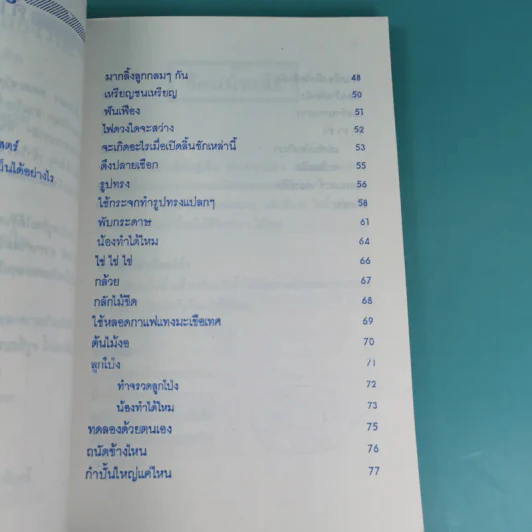 สตร์
ป็นได้อย่างไร
มากลิ้งลูกกลมๆ กัน 48
เหรียญชนเหรียญ 50
ฟันเฟือง 51
ไฟดวงใดจะสว่าง 52
จะเกิดอะไรเมื่อเปิดลิ้นชักเหล่านี้ 53
ดึงปลายเชือก 55
รูปทรง 56
ใช้กระจกทำรูปทรงแปลกๆ 58
พับกระดาษ 61
น้องทำได้ไหม 64
ไข่ ไข่ ไข่ 66
กล้วย 67
กลักไม้ขีด 68
ใช้หลอดกาแฟแทงมะเขือเทศ 69
ต้นไม้งอ 70
ลูกโป่ง 71
ทำจรวดลูกโป่ง 72
น้องทำได้ไหม 73
ทดลองด้วยตนเอง 75
ถนัดข้างไหน 76
กำปั้นใหญ่แค่ไหน 77